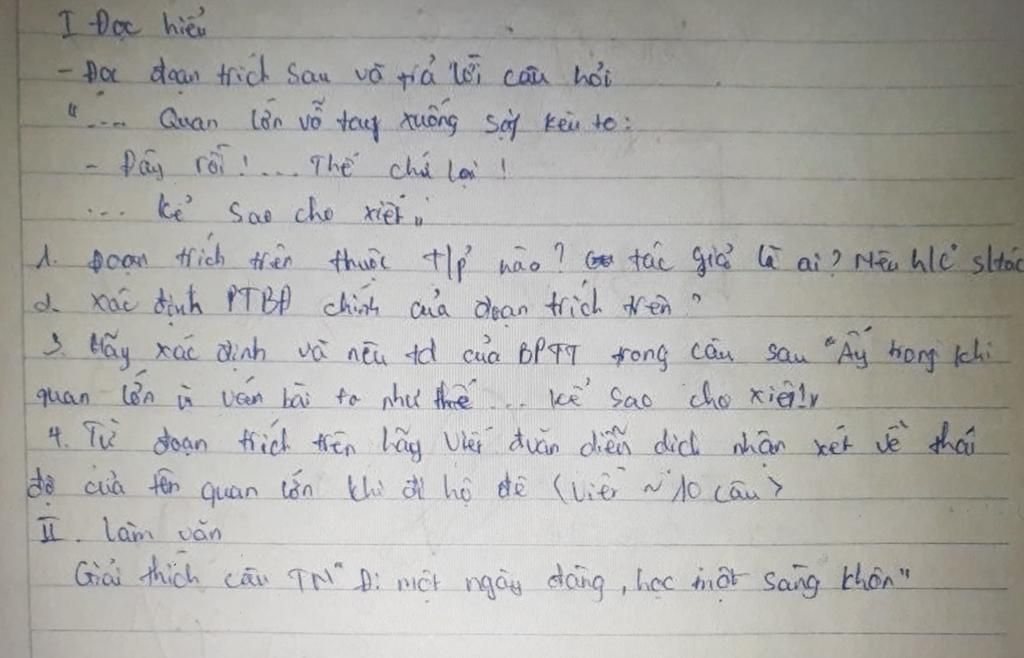 I Đọc hiểu
- Đọc đoạn trích sau và trả lời câu hỏi
"... Quan lớn vỗ tay xuống sập kêu to:
- Đây rồi! ... Thế chứ lại!
... kể sao cho xiết"
1. Đoạn trích trên thuộc t/p nào? tác giả là ai? Nêu h/c s/tác
2. Xác định PTBĐ chính của đoạn trích trên?
3. Hãy xác định và nêu td của BPTT trong câu sau "Ấy trong khi
quan lớn ù ván bài to như thế ... kể sao cho xiết!"
4. Từ đoạn trích trên hãy viết đvăn diễn dịch nhận xét về thái
độ của tên quan lớn khi đi hộ đê (viết ~ 10 câu)
II. Làm văn
Giải thích câu TN "Đi một ngày đàng, học một sàng khôn"